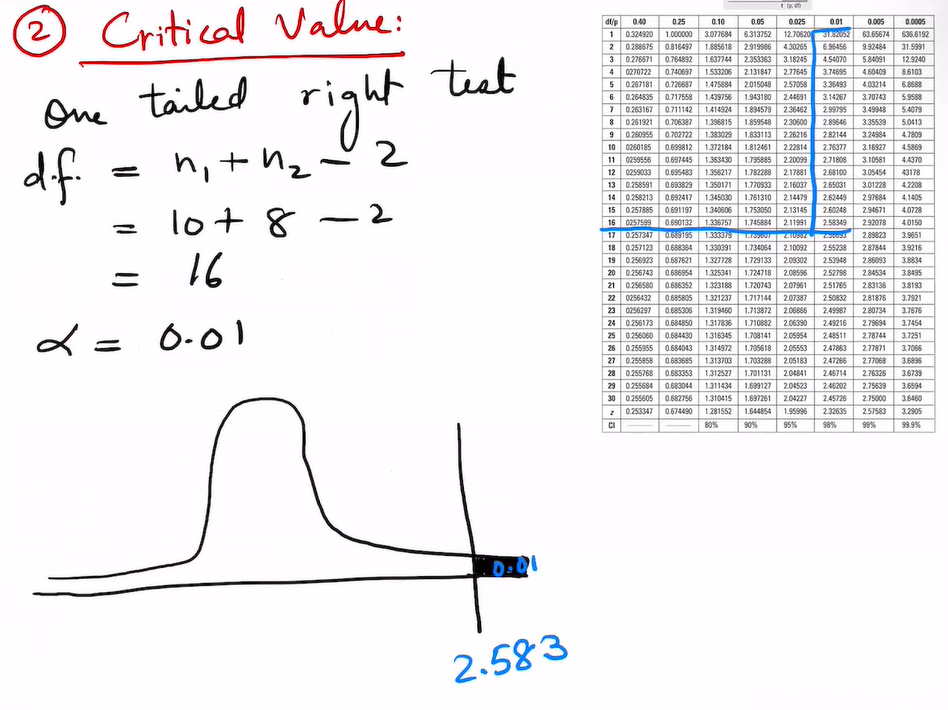 ② Critical Value:
One tailed right test
d.f. = n₁ + n₂ - 2
= 10 + 8 - 2
= 16
α = 0.01
0.01
2.583
t (p, df)
df/p 0.40 0.25 0.10 0.05 0.025 0.01 0.005 0.0005
1 0.324920 1.000000 3.077684 6.313752 12.70620 31.82052 63.65674 636.6192
2 0.288675 0.816497 1.885618 2.919986 4.30265 6.96456 9.92484 31.5991
3 0.276671 0.764892 1.637744 2.353363 3.18245 4.54070 5.84091 12.9240
4 0270722 0.740697 1.533206 2.131847 2.77645 3.74695 4.60409 8.6103
5 0.267181 0.726687 1.475884 2.015048 2.57058 3.36493 4.03214 6.8688
6 0.264835 0.717558 1.439756 1.943180 2.44691 3.14267 3.70743 5.9588
7 0.263167 0.711142 1.414924 1.894579 2.36462 2.99795 3.49948 5.4079
8 0.261921 0.706387 1.396815 1.859548 2.30600 2.89646 3.35539 5.0413
9 0.260955 0.702722 1.383029 1.833113 2.26216 2.82144 3.24984 4.7809
10 0260185 0.699812 1.372184 1.812461 2.22814 2.76377 3.16927 4.5869
11 0259556 0.697445 1.363430 1.795885 2.20099 2.71808 3.10581 4.4370
12 0259033 0.695483 1.356217 1.782288 2.17881 2.68100 3.05454 43178
13 0.258591 0.693829 1.350171 1.770933 2.16037 2.65031 3.01228 4.2208
14 0.258213 0.692417 1.345030 1.761310 2.14479 2.62449 2.97684 4.1405
15 0.257885 0.691197 1.340606 1.753050 2.13145 2.60248 2.94671 4.0728
16 0257599 0.690132 1.336757 1.745884 2.11991 2.58349 2.92078 4.0150
17 0.257347 0.689195 1.333379 1.739607 2.10982 2.56693 2.89823 3.9651
18 0.257123 0.688364 1.330391 1.734064 2.10092 2.55238 2.87844 3.9216
19 0.256923 0.687621 1.327728 1.729133 2.09302 2.53948 2.86093 3.8834
20 0.256743 0.686954 1.325341 1.724718 2.08596 2.52798 2.84534 3.8495
21 0.256580 0.686352 1.323188 1.720743 2.07961 2.51765 2.83136 3.8193
22 0256432 0.685805 1.321237 1.717144 2.07387 2.50832 2.81876 3.7921
23 0256297 0.685306 1.319460 1.713872 2.06866 2.49987 2.80734 3.7676
24 0.256173 0.684850 1.317836 1.710882 2.06390 2.49216 2.79694 3.7454
25 0.256060 0.684430 1.316345 1.708141 2.05954 2.48511 2.78744 3.7251
26 0.255955 0.684043 1.314972 1.705618 2.05553 2.47863 2.77871 3.7066
27 0.255858 0.683685 1.313703 1.703288 2.05183 2.47266 2.77068 3.6896
28 0.255768 0.683353 1.312527 1.701131 2.04841 2.46714 2.76326 3.6739
29 0.255684 0.683044 1.311434 1.699127 2.04523 2.46202 2.75639 3.6594
30 0.255605 0.682756 1.310415 1.697261 2.04227 2.45726 2.75000 3.6460
z 0.253347 0.674490 1.281552 1.644854 1.95996 2.32635 2.57583 3.2905
CI 80% 90% 95% 98% 99% 99.9%